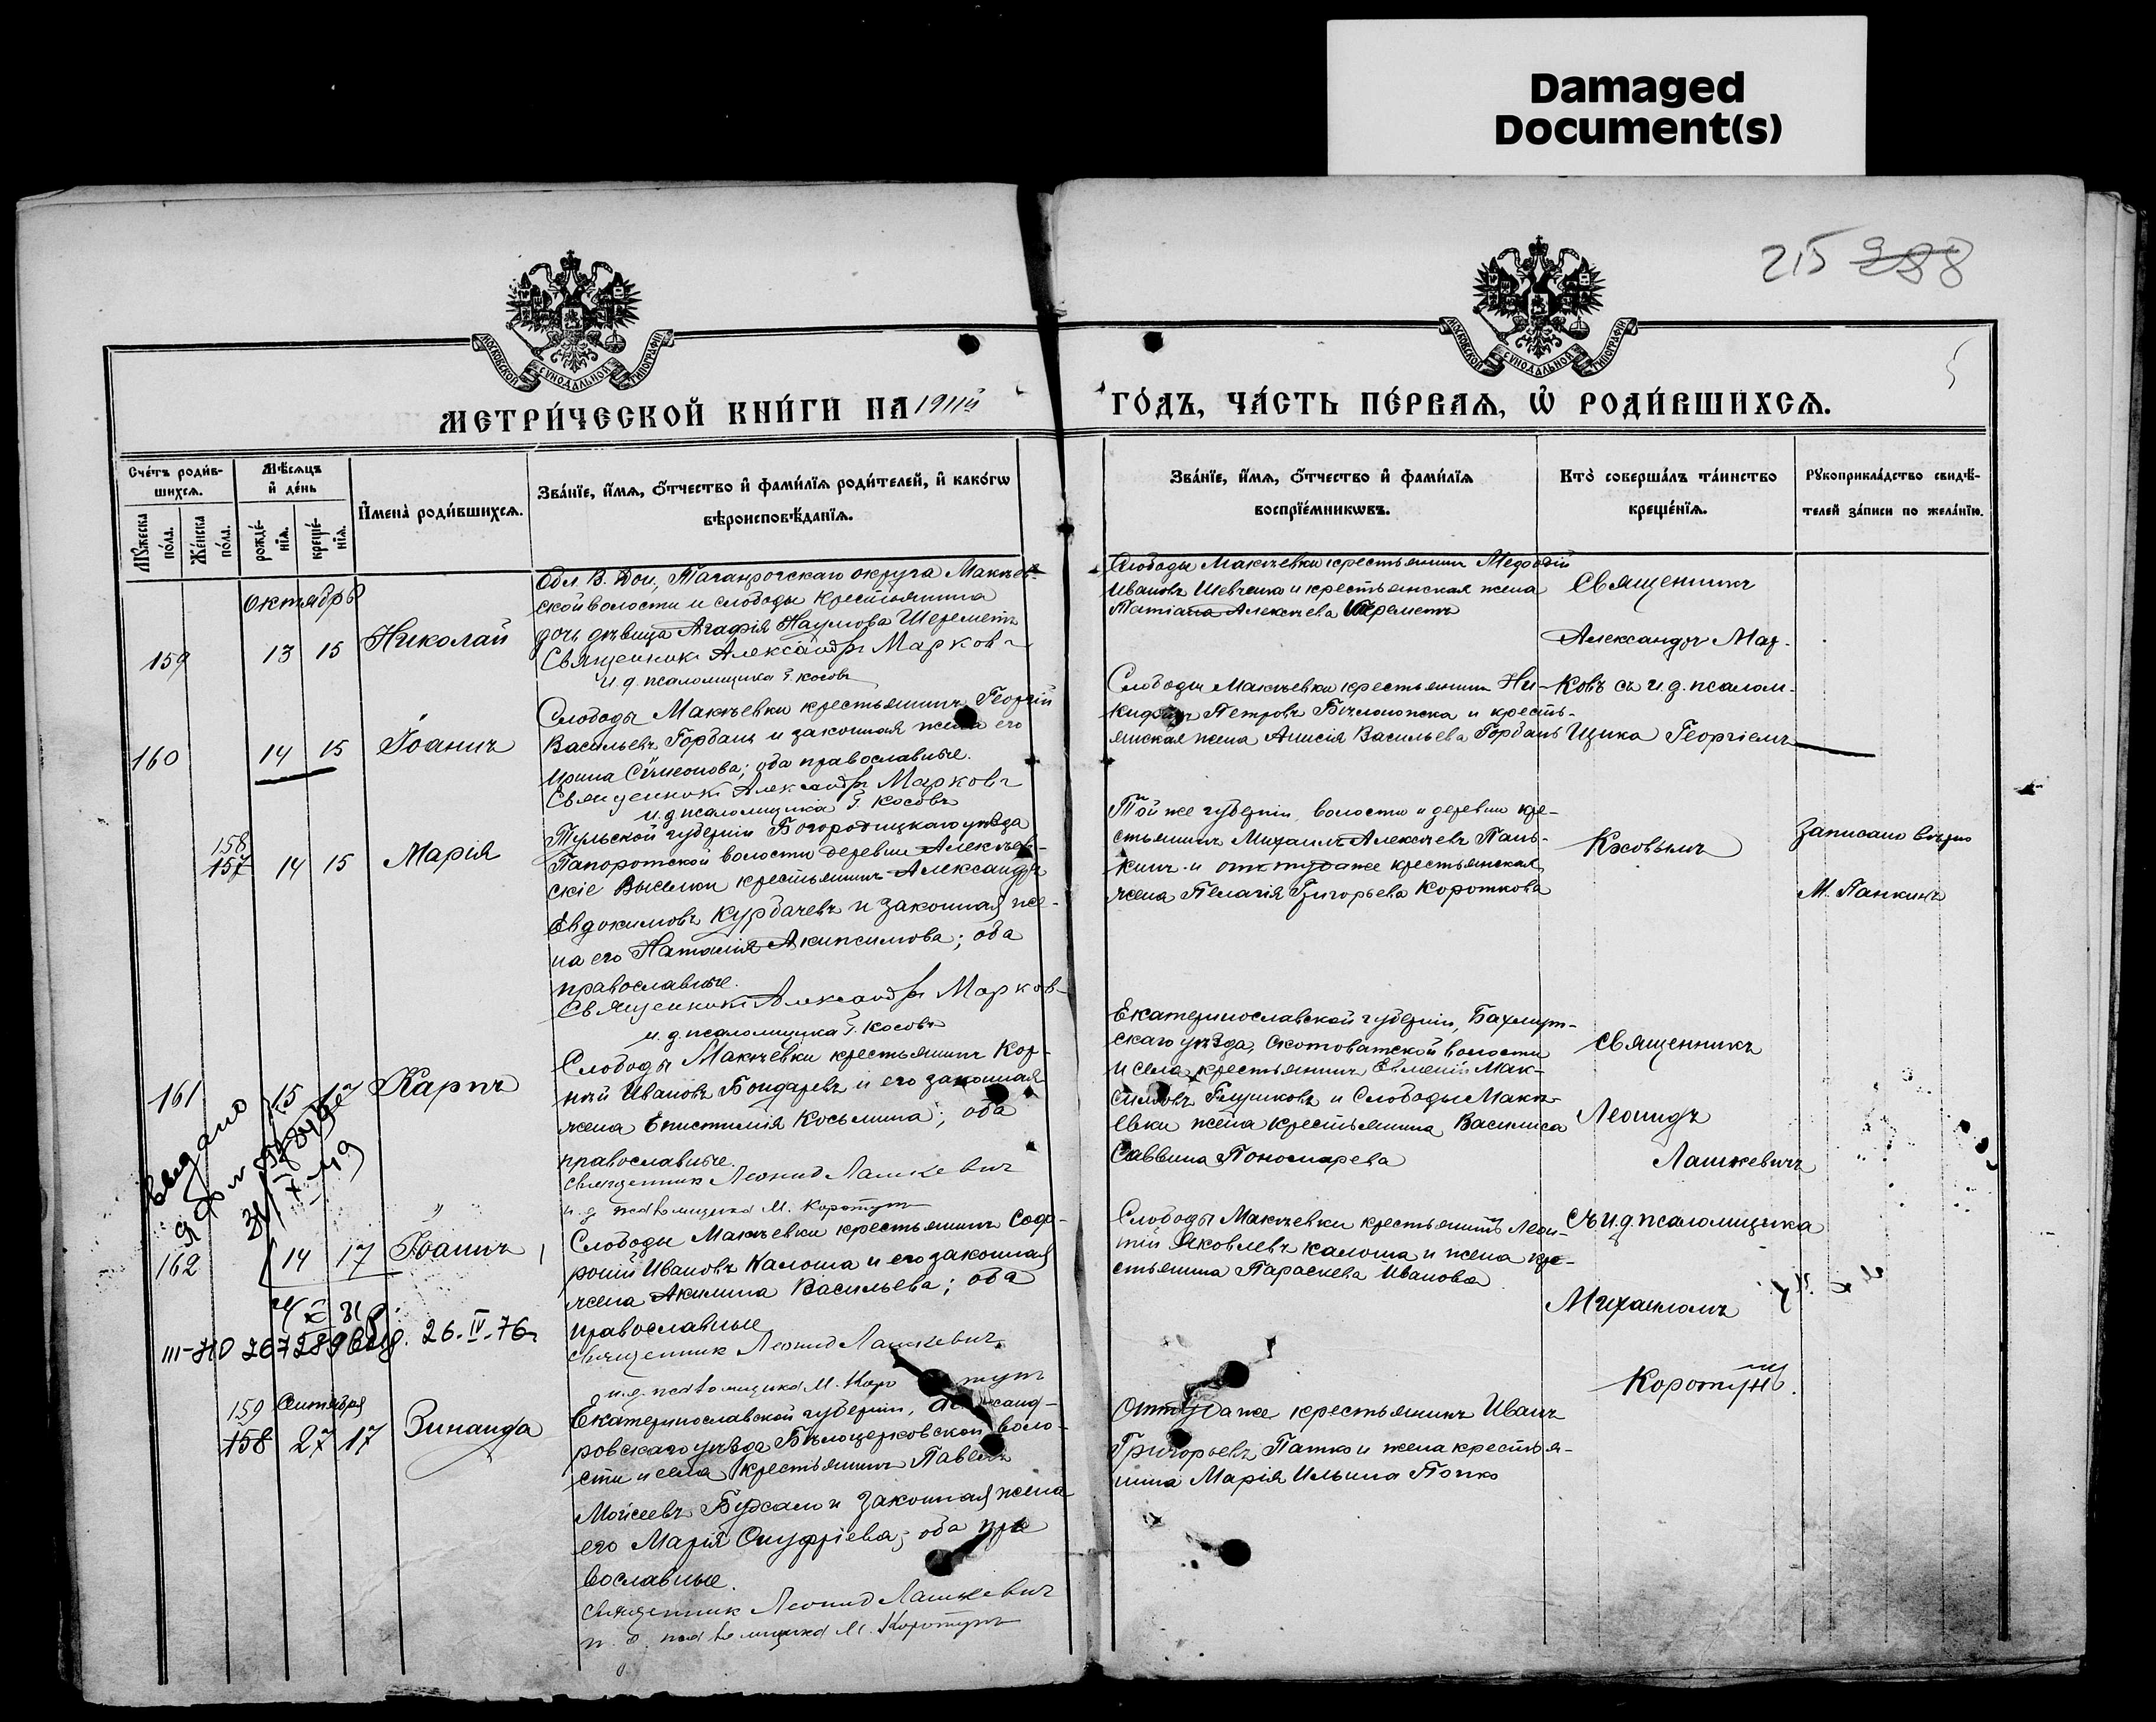 Damaged
Document(s)
215 288
МОСКОВСКОЙ СУНОДАЛЬНОЙ ТИПОГРАФІИ
МОСКОВСКОЙ СУНОДАЛЬНОЙ ТИПОГРАФІИ
МЕТРИ́ЧЕСКОЙ КНИ́ГИ НА 1911й ГО́ДЪ, ЧА́СТЬ ПЕ́РВАѦ, Ѡ҆ РОДИ́ВШИХСѦ.
Сче́тъ роди́в-
шихсѧ.
Мꙋ́жеска по́ла.
Же́нска по́ла.
Мѣ́сѧцъ
и҆ де́нь
рожде́-
нїѧ.
креще́-
нїѧ.
И҆мена̀ роди́вшихсѧ.
Зва́нїе, и҆́мѧ, ѻ҆́тчество и҆ фами́лїѧ роди́телей, и҆ како́гѡ
вѣроисповѣ́данїѧ.
Зва́нїе, и҆́мѧ, ѻ҆́тчество и҆ фами́лїѧ
воспрїе́мникѡвъ.
Кто̀ соверша́лъ та́инство
креще́нїѧ.
Рꙋкоприкла́дство свидѣ́-
телей за́писи по жела́нїю.
Октября
159
13 15
Николай
Обл. В. Дон., Таганрогскаго округа Макѣев-
ской волости и слободы крестьянина
дочь дѣвица Агафія Наумова Шереметъ
Священникъ Александръ Марковъ
И. д. псаломщика Г. Косовъ
Слободы Макѣевки крестьянинъ Меѳодій
Ивановъ Шевченко и крестьянская жена
Татіана Алексѣева Шереметъ
Священникъ
Александръ Мар-
ковъ съ и. д. псалом-
щика Георгіемъ
Косовымъ
160
14 15
Іоаннъ
Слободы Макѣевки крестьянинъ Георгій
Васильевъ Горбань и законная жена его
Ирина Сѵмеонова; оба православные.
Священникъ Александръ Марковъ
и. д. псаломщика Г. Косовъ
Слободы Макѣевки крестьянинъ Ни-
кифоръ Петровъ и кресть-
янская жена Анисія Васильева Горбань
158
157
14 15
Марія
Тульской губерніи Богородицкаго уѣзда
Папоротской волости деревни Алексѣев-
скіе Выселки крестьянинъ Александръ
Евдокимовъ Курбачевъ и законная же-
на его Наталія; оба
православные.
Священникъ Александръ Марковъ
и. д. псаломщика Г. Косовъ
Той же губерніи, волости и деревни кре-
стьянинъ Михаилъ Алексѣевъ Пань-
кинъ и оттудаже крестьянская
жена Пелагія Григорьева Короткова
Записано вѣрно
М. Панкинъ
161
15 17
Карпъ
Слободы Макѣевки крестьянинъ Кор-
ній Ивановъ Бондаревъ и его законная
жена Епистимія Косьмина; оба
православные.
Священникъ Леонид Лашкевич
и. д. псаломщика М. Коротунъ
Екатеринославской губерніи, Бахмут-
скаго уѣзда, Скотоватской волости
и села, крестьянинъ Евменій Мак-
симовъ Глушковъ и Слободы Макѣ-
евки жена крестьянина Василиса
Саввина Пономарева
Священникъ
Леонидъ
Лашкевичъ
съ и. д. псаломщика
Михаиломъ
Коротунъ.
162
14 17
Іоаннъ
Слободы Макѣевки крестьянинъ Соф-
роній Ивановъ Калоша и его законная
жена Акилина Васильева; оба
православные
Священник Леонид Лашкевичъ
и. д. псаломщика М. Коротунъ
Слободы Макѣевки крестьянинъ Леон-
тій Яковлевъ Калоша и жена кре-
стьянина Параскева Иванова
III-НО 267289 выд. 26-IV-76г
159
158
Сентября
27 17
Зинаида
Екатеринославской губерніи, Александ-
ровскаго уѣзда Бѣлоцерковской воло-
сти и села крестьянинъ Павелъ
Моисеевъ и законная жена
его Марія Онуфріева; оба пра
вославные.
Священник Леонид Лашкевич
и. д. псаломщика М. Коротунъ
Оттудаже крестьянинъ Иванъ
Григорьевъ Патко и жена крестья-
нина Марія Ильина